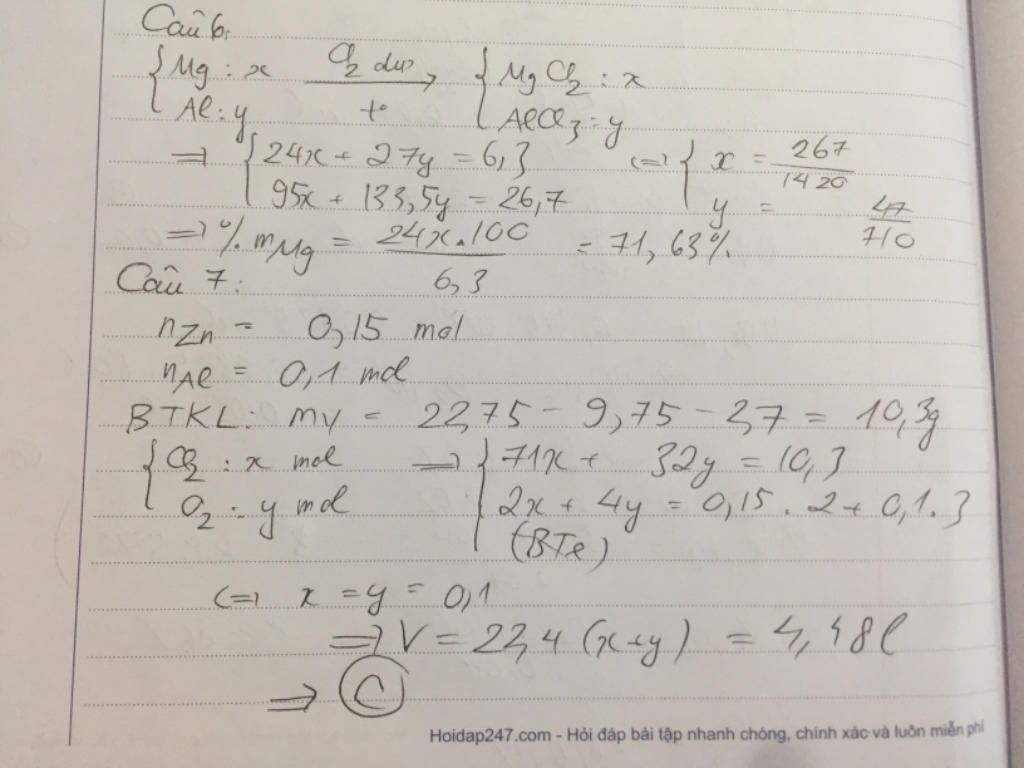 Câu 6:
{ Mg : x   Cl2 dư →   { MgCl2 : x
Al : y   t°   AlCl3 : y
=> { 24x + 27y = 6,3   <=> { x = 267/1420
95x + 133,5y = 26,7   y = 47/710
=> % mMg = 24x.100/6,3 = 71,63%
Câu 7:
nZn = 0,15 mol
nAl = 0,1 mol
BTKL: mV = 22,75 - 9,75 - 2,7 = 10,3g
{ Cl2 : x mol   => { 71x + 32y = 10,3
O2 : y mol   2x + 4y = 0,15 . 2 + 0,1 . 3
(BTe)
<=> x = y = 0,1
=> V = 22,4 (x+y) = 4,48l
=> C
Hoidap247.com - Hỏi đáp bài tập nhanh chóng, chính xác và luôn miễn phí